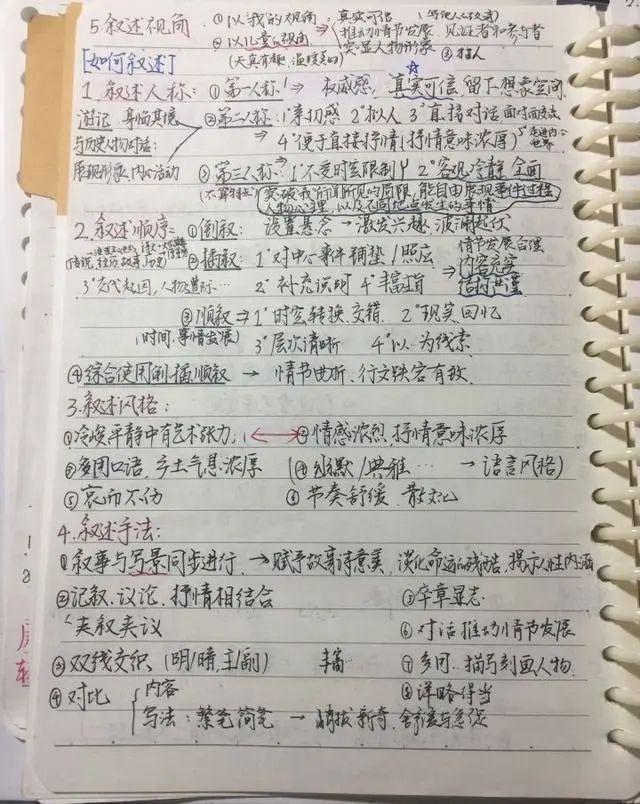 5.叙述视角 ①以我的视角 真实可信
②以儿童的视角 → 推动情节发展 见证者和参与者
(天真有趣,温暖美好) 突显人物形象 ③
[如何叙述] ☆
1.叙述人称:①第一人称 → 权威感,真实可信 留下想象空间
游记 身临其境 ②第二人称:1°亲切感 2°拟人 3°直接对话 面对面
与历史人物对话: → 4°便于直接抒情(抒情意味浓厚) 5°走进内心世界
展现形象、内心活动 ③第三人称:1°不受时空限制 2°客观冷静 全面
突破我所见所闻的局限,能自由展现事件过程
人物心理 以及不同地点发生的事情
2.叙述顺序:①倒叙:设置悬念 → 激发兴趣,波澜起伏
②插叙:1°对中心事件铺垫/照应 情节发展合理
3°交代起因,人物 … 2°补充说明 4°丰富 ⇒ 内容充实
结构严谨
③顺叙 ⇒ 1°时空转换.交错 2°现实回忆
(时间.事情发展) 3°层次清晰 4°以 为线索
④综合使用倒插顺叙 → 情节曲折.行文跌宕有致
3.叙述风格:
①冷峻平静中有艺术张力, ↔ ②情感浓烈,抒情意味浓厚
③多用口语,乡土气息浓厚 (④幽默/典雅 … → 语言风格)
⑤哀而不伤 ⑥节奏舒缓 散文化
4.叙述手法:
①叙事与写景同步进行 → 赋予故事诗意美,淡化命运的残酷,揭示人性内涵
②记叙、议论、抒情相结合 ⑤卒章显志
夹叙夹议 ⑥对话推动情节发展
③双线交织(明/暗,主/副) 丰富 ⑦多用..描写刻画人物
④对比 内容 ⑧详略得当
写法:繁笔简笔 → 新奇